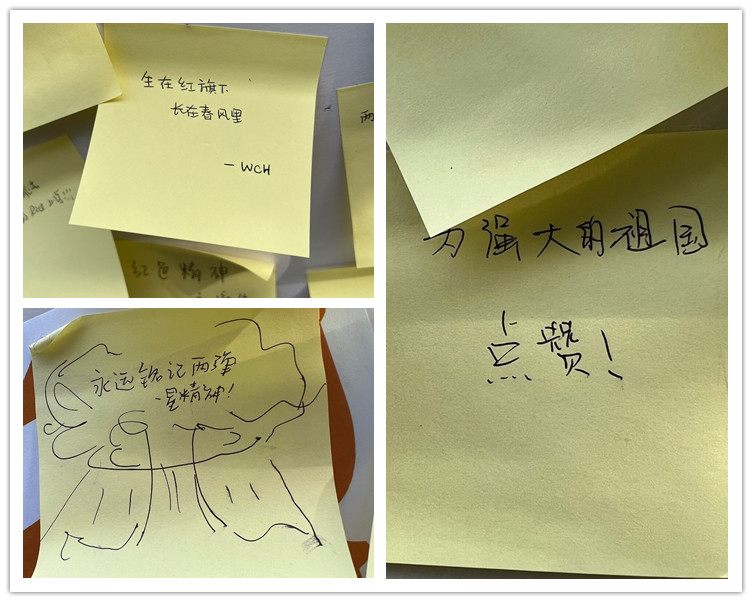 生在红旗下
长在春风里
—WCH
两
红色精神
永远铭记两弹
一星精神!
为强大的祖国
点赞!